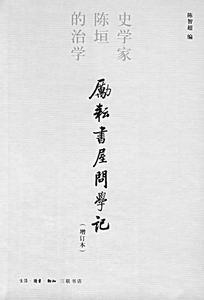 史学家
陈垣
的治学
陈智超 编
励耘書屋問學记
（增订本）
生活·讀書·新知 三联书店